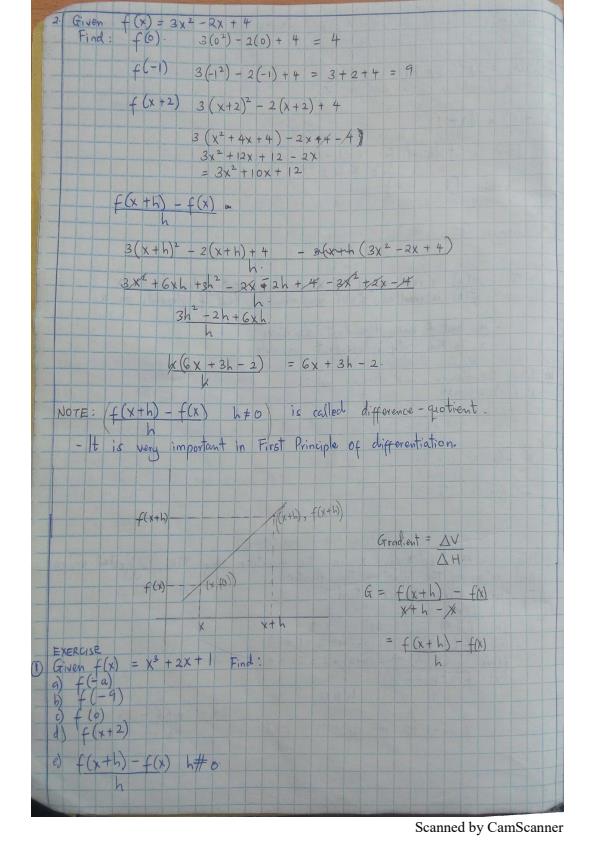 2. Given f(x) = 3x² - 2x + 4
Find: f(0). 3(0²) - 2(0) + 4 = 4
f(-1) 3(-1²) - 2(-1) + 4 = 3 + 2 + 4 = 9
f(x+2) 3(x+2)² - 2(x+2) + 4
3(x² + 4x + 4) - 2x + 4 - 4)
3x² + 12x + 12 - 2x
= 3x² + 10x + 12
f(x+h) - f(x) =
h
3(x+h)² - 2(x+h) + 4 - (3x² - 2x + 4)
h.
3x² + 6xh + 3h² - 2x - 2h + 4 - 3x² + 2x - 4
h
3h² - 2h + 6xh
h
h(6x + 3h - 2) = 6x + 3h - 2.
h
NOTE: (f(x+h) - f(x) h≠0) is called difference-quotient.
h
- It is very important in First Principle of differentiation.
f(x+h) (x+h), f(x+h)
Gradient = ΔV
ΔH.
f(x)
G = f(x+h) - f(x)
x + h - x
x x+h
= f(x+h) - f(x)
h
EXERCISE
① Given f(x) = x³ + 2x + 1 Find:
a) f(-a)
b) f(-9)
c) f(0)
d) f(x+2)
e) f(x+h) - f(x) h≠0
h
Scanned by CamScanner